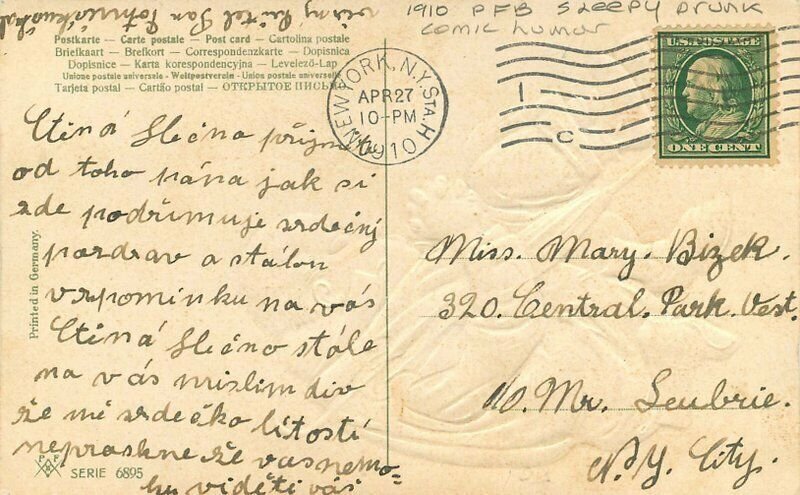 1910 PFB SLEEPY DRUNK
comic humor
věrný přítel Jan
Postkarte – Carte postale – Post card – Cartolina postale
Briefkaart – Brefkort – Correspondenzkarte – Dopisnica
Dopisnice – Karta korespondencyjna – Levelező-Lap
Unione postale universale – Weltpostverein – Union postale universelle
Tarjeta postal – Cartão postal – ОТКРЫТОЕ ПИСЬМО
NEW YORK, N.Y. STA. H
APR 27
10-PM
1910
1
C
U.S. POSTAGE
ONE CENT
Ctěná Slečno přijmi
od toho pána jak si
zde podřimuje srdečný
pozdrav a stálou
vzpomínku na vás
Ctěná Slečno stále
na vás mislim div
že mě srdečko lítostí
nepraskne že vas nemo=
hu viděti váš
Miss. Mary. Bizek.
320. Central. Park. Vest.
c/o. Mr. Leubrie.
N.Y. City.
Printed in Germany.
PFB
SERIE 6895